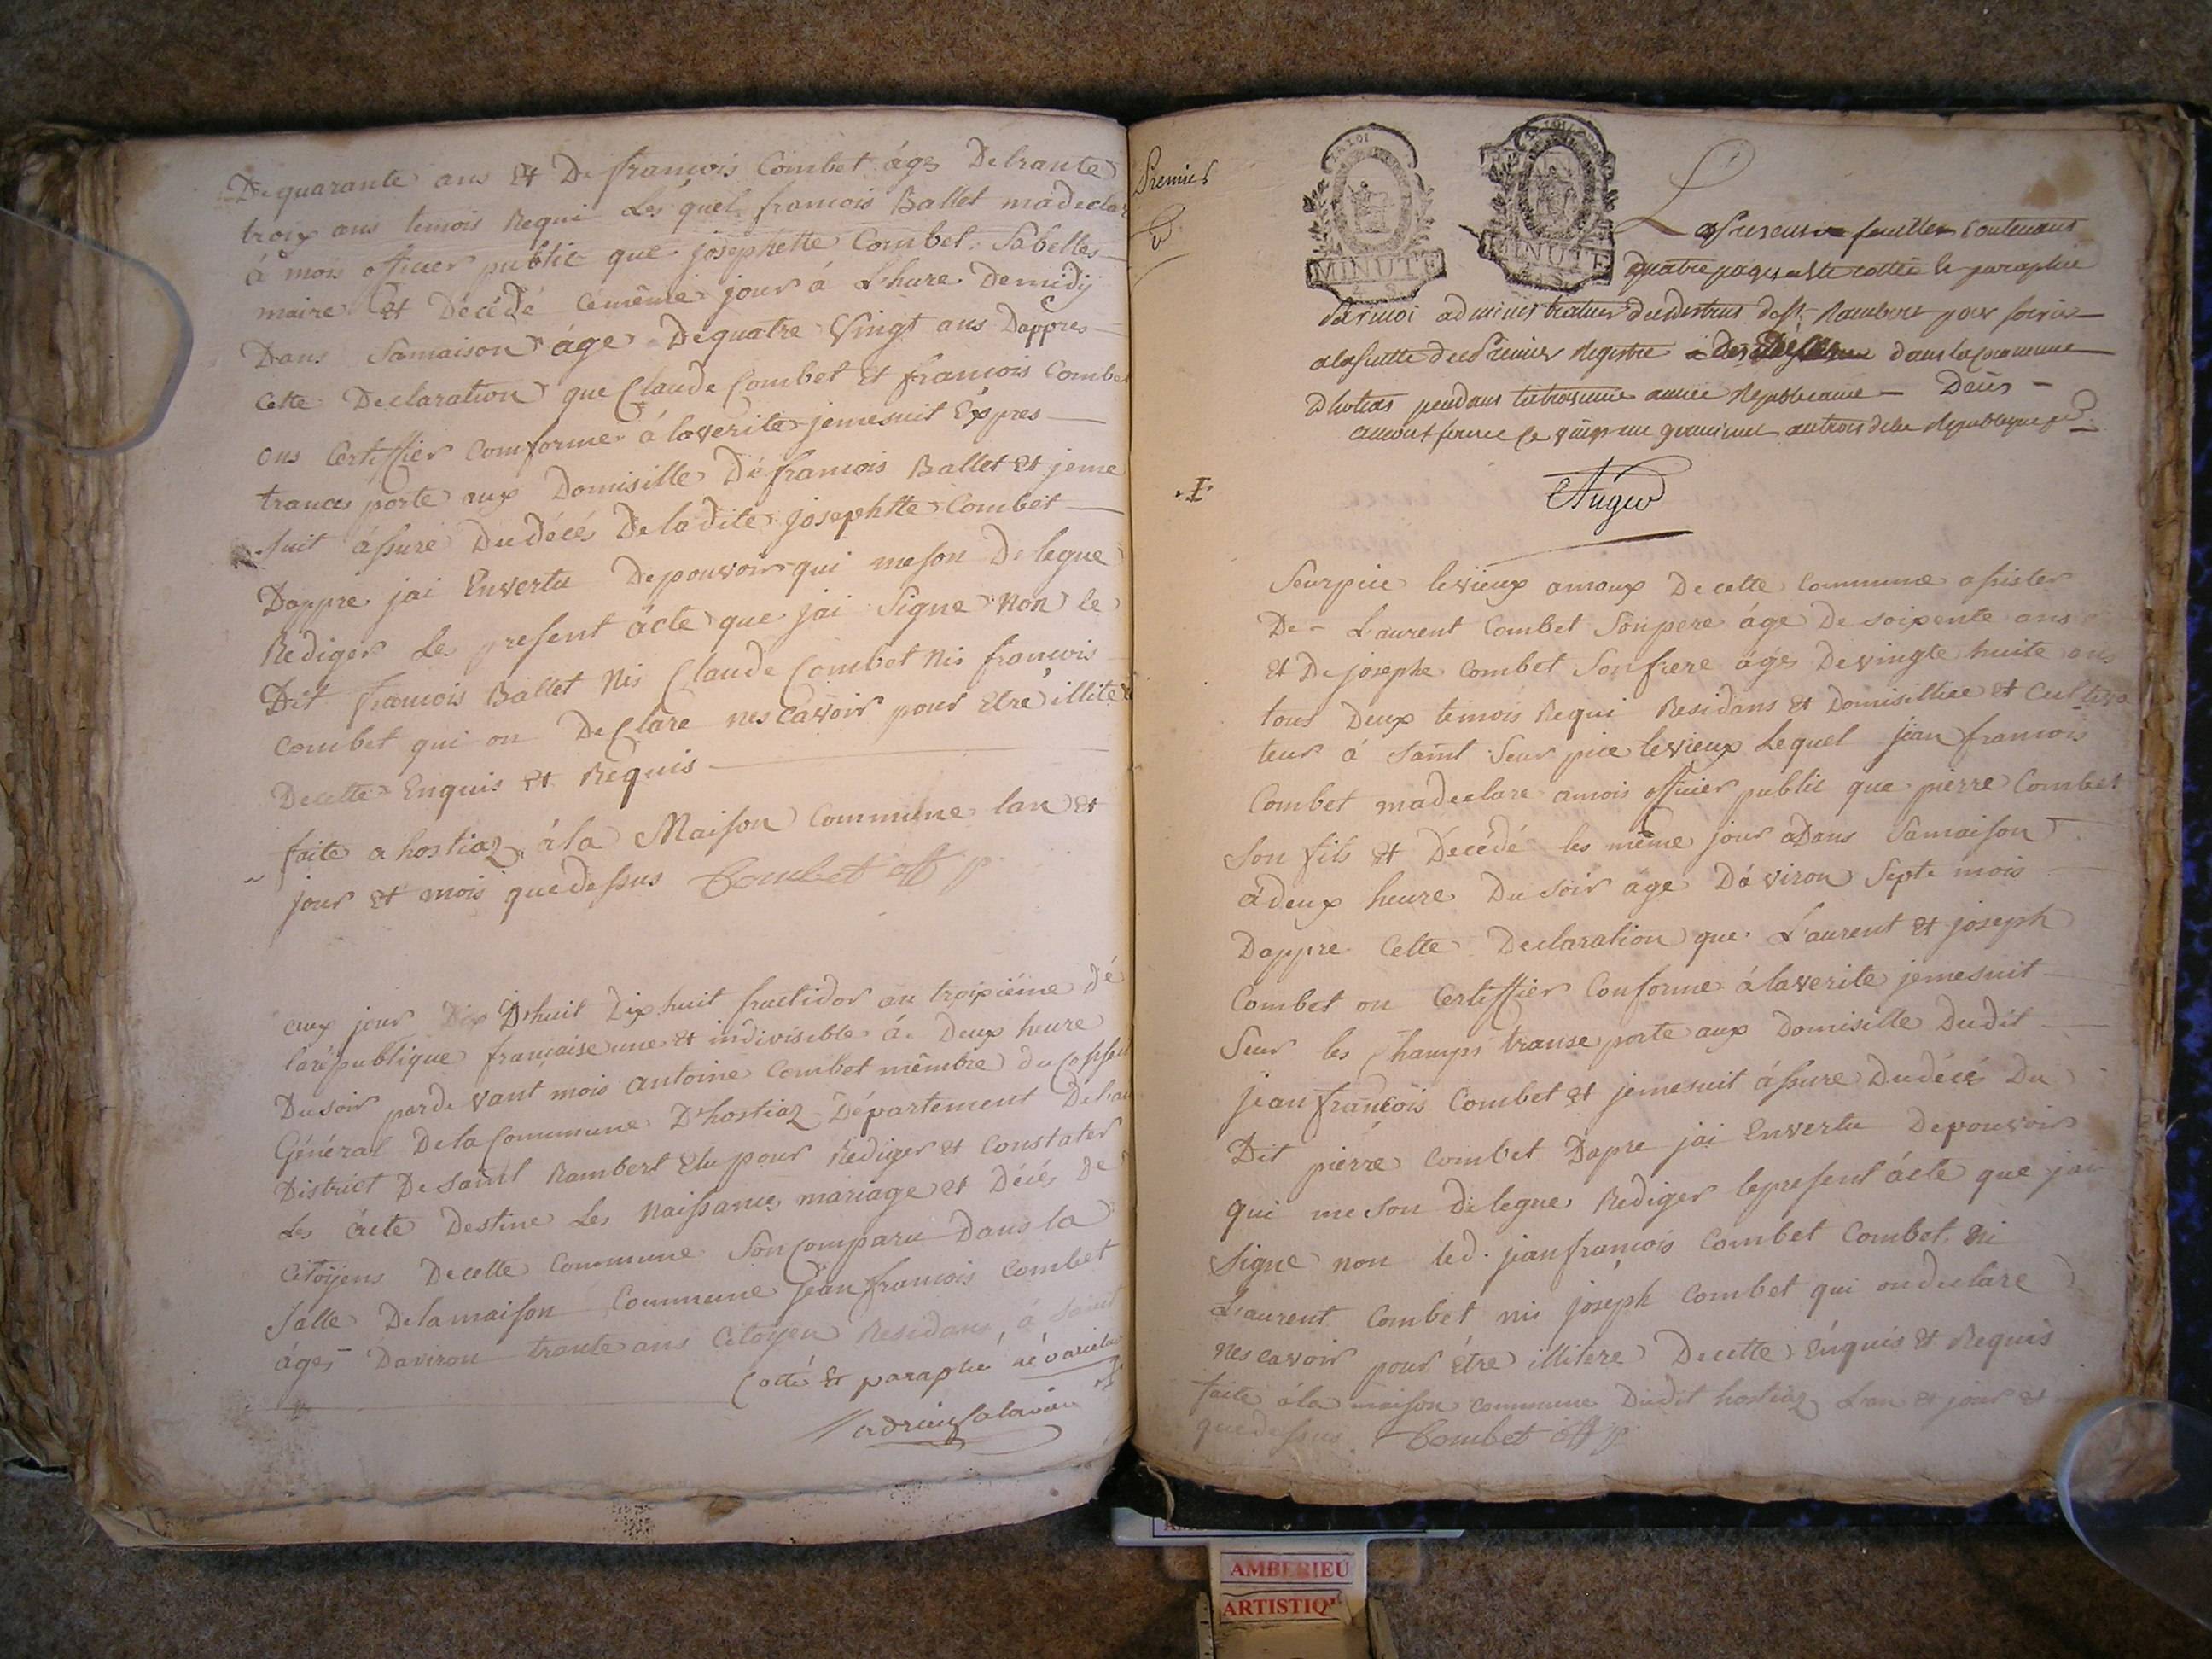 De quarante ans Et De francois Combet âgs De trante
troix ans temois Requi Les quel francois Ballet madeclar
á mois officier public que josephette Combet Sabelles
maire Et Décédé cemême jour á L'hure Demidÿ
Dans Samaison áge Dequatre Vingt ans Dappres
cette Declaration que Claude Combet Et francois Combet
ons Certiffier Comforme á laverite jemesuit Expres
trances porte aux Domisille Dé francois Ballet Et jeme
suit ássure Du décés De la dite josephtte Combet
Dappre jai Envertu Depouvoir qui meson Delegue
Rediger Les present ácte que jai Signe Non le
Dit francois Ballet Nis Claude Combet Nis francois
combet qui on Declare nescavoir pour Etre illite
Decette Enquis Et Requis
faite a hostiaz á la Maison Commune lan Et
jour Et mois que dessus Combet off p
aux jour Dix Dhuit Dix huit fructidor an troixiéme dé
larépublique francaise une et indivisible á Deux heure
Dusoir par de vant mois antoine Combet mêmbre du Consei
Général De la Commune D'hostiaz Département De l'ai
District De Saint Rambert Elu pour Rédiger Et Constater
Les ácte Destine Les Naissance mariage et Décés De
Citoÿens Decette Commune Son Comparu Dans la
Salle De la maison Commune jean francois Combet
áges Daviron trante ans Citoyen Residans á Saint
Cotté Et paraphé né varietur
Premier
LA LOI
MINUTE
4 S.
MINUTE
Le present feuillet contenant
quatre pages a été cotté et paraphé
Par moi administrateur du district de St Rambert pour servir
a la suitte du Premier Registre des Décès dans la commune
d'hotias pendant la troisieme année Republicaine — Deüs —
I
Auger
Seurpice levieux amoux De cette Commune assister
De L'aurent Combet Sonpere áge De soixente ans
Et De josephe Combet Sonfrere áges De vingte huite ans
tous Deux temois Requi Residans Et Domisilliee et Cultiva
teur á Saint Seur pice levieux Lequel jean francois
Combet madeclare amois officier public que pierre Combet
Son fils Et Décédé les même jour aDans Samaison
ádeux heure Du soir age Dáviron Septe mois
Dappre Cette Declaration que L'aurent Et joseph
Combet on Certiffier Conforme á laverite jemesuit
Seur les Champs transe porte aux Domisille Dudit
jean francois Combet Et jemesuit ássure Dudécés Du
Dit piérre Combet Dapre jai Envertu Depouvoir
qui me Son Delegue Rediger lepresent ácte que jai
Signe non led. jean francois Combet Combet Ni
L'aurent Combet nis joseph Combet qui on declare
nescavoir pour Étre illitere Decette Énquis Et Requis
faite á la maison Commune Dudit hostiaz L'an Et jour Et
que dessus Combet off p
AMBERIEU
ARTISTIQ